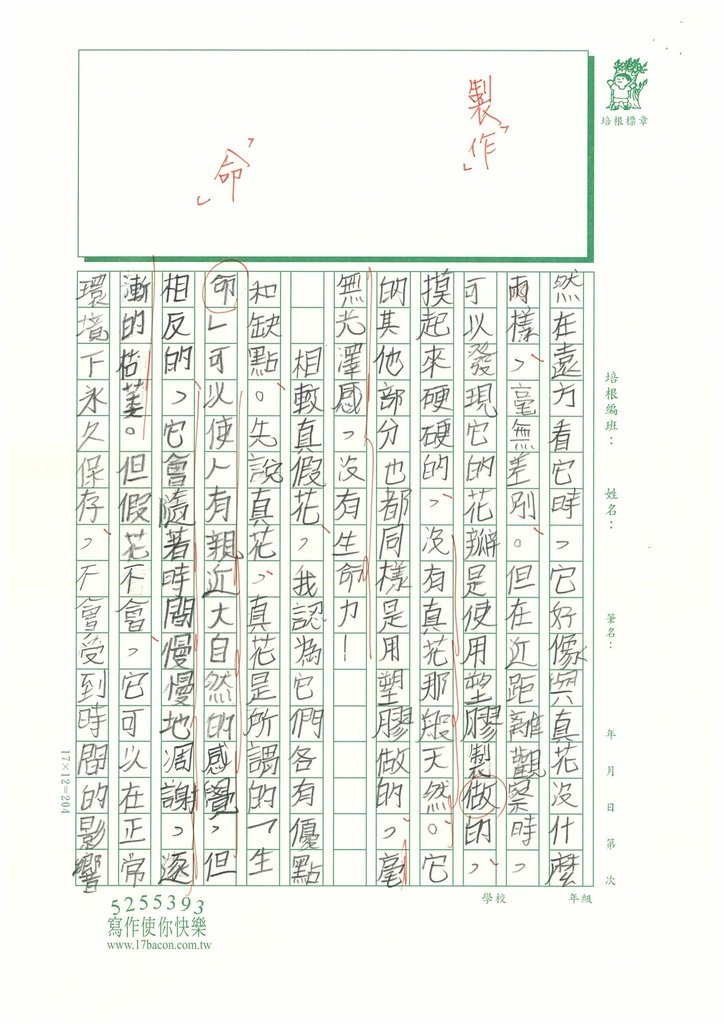 製作
命
培根標章
培根編班：
姓名：
筆名：
年 月 日 第 次
然在遠方看它時，它好像與真花沒什麼
兩樣，毫無差別。但在近距離觀察時，
可以發現它的花瓣是使用塑膠製做的，
摸起來硬硬的，沒有真花那般天然。它
的其他部分也都同樣是用塑膠做的，毫
無光澤感，沒有生命力！
相較真假花，我認為它們各有優點
和缺點。先說真花，真花是所謂的「生
命」可以使人有親近大自然的感覺，但
相反的，它會隨著時間慢慢地凋謝，逐
漸的枯萎。但假花不會，它可以在正常
環境下永久保存，不會受到時間的影響
17×12=204
學校
年級
5255393
寫作使你快樂
www.17bacon.com.tw